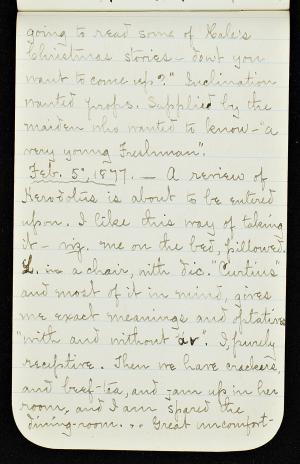 going to read some of Hale's
Christmas stories - don't you
want to come up?" Inclination
wanted props. Supplied by the
maiden who wanted to know - "a
very young Freshman".
Feb. 5, 1877. — A review of
Herodotus is about to be entered
upon. I like this way of taking
it - viz. me on the bed, pillowed.
L. in a chair, with dic. "Curtius"
and most of it in mind, gives
me exact meanings and optatives
"with and without ἄν". I purely
receptive. Then we have crackers,
and beef-tea, and jam up in her
room, and I am spared the
dining-room... Great uncomfort-